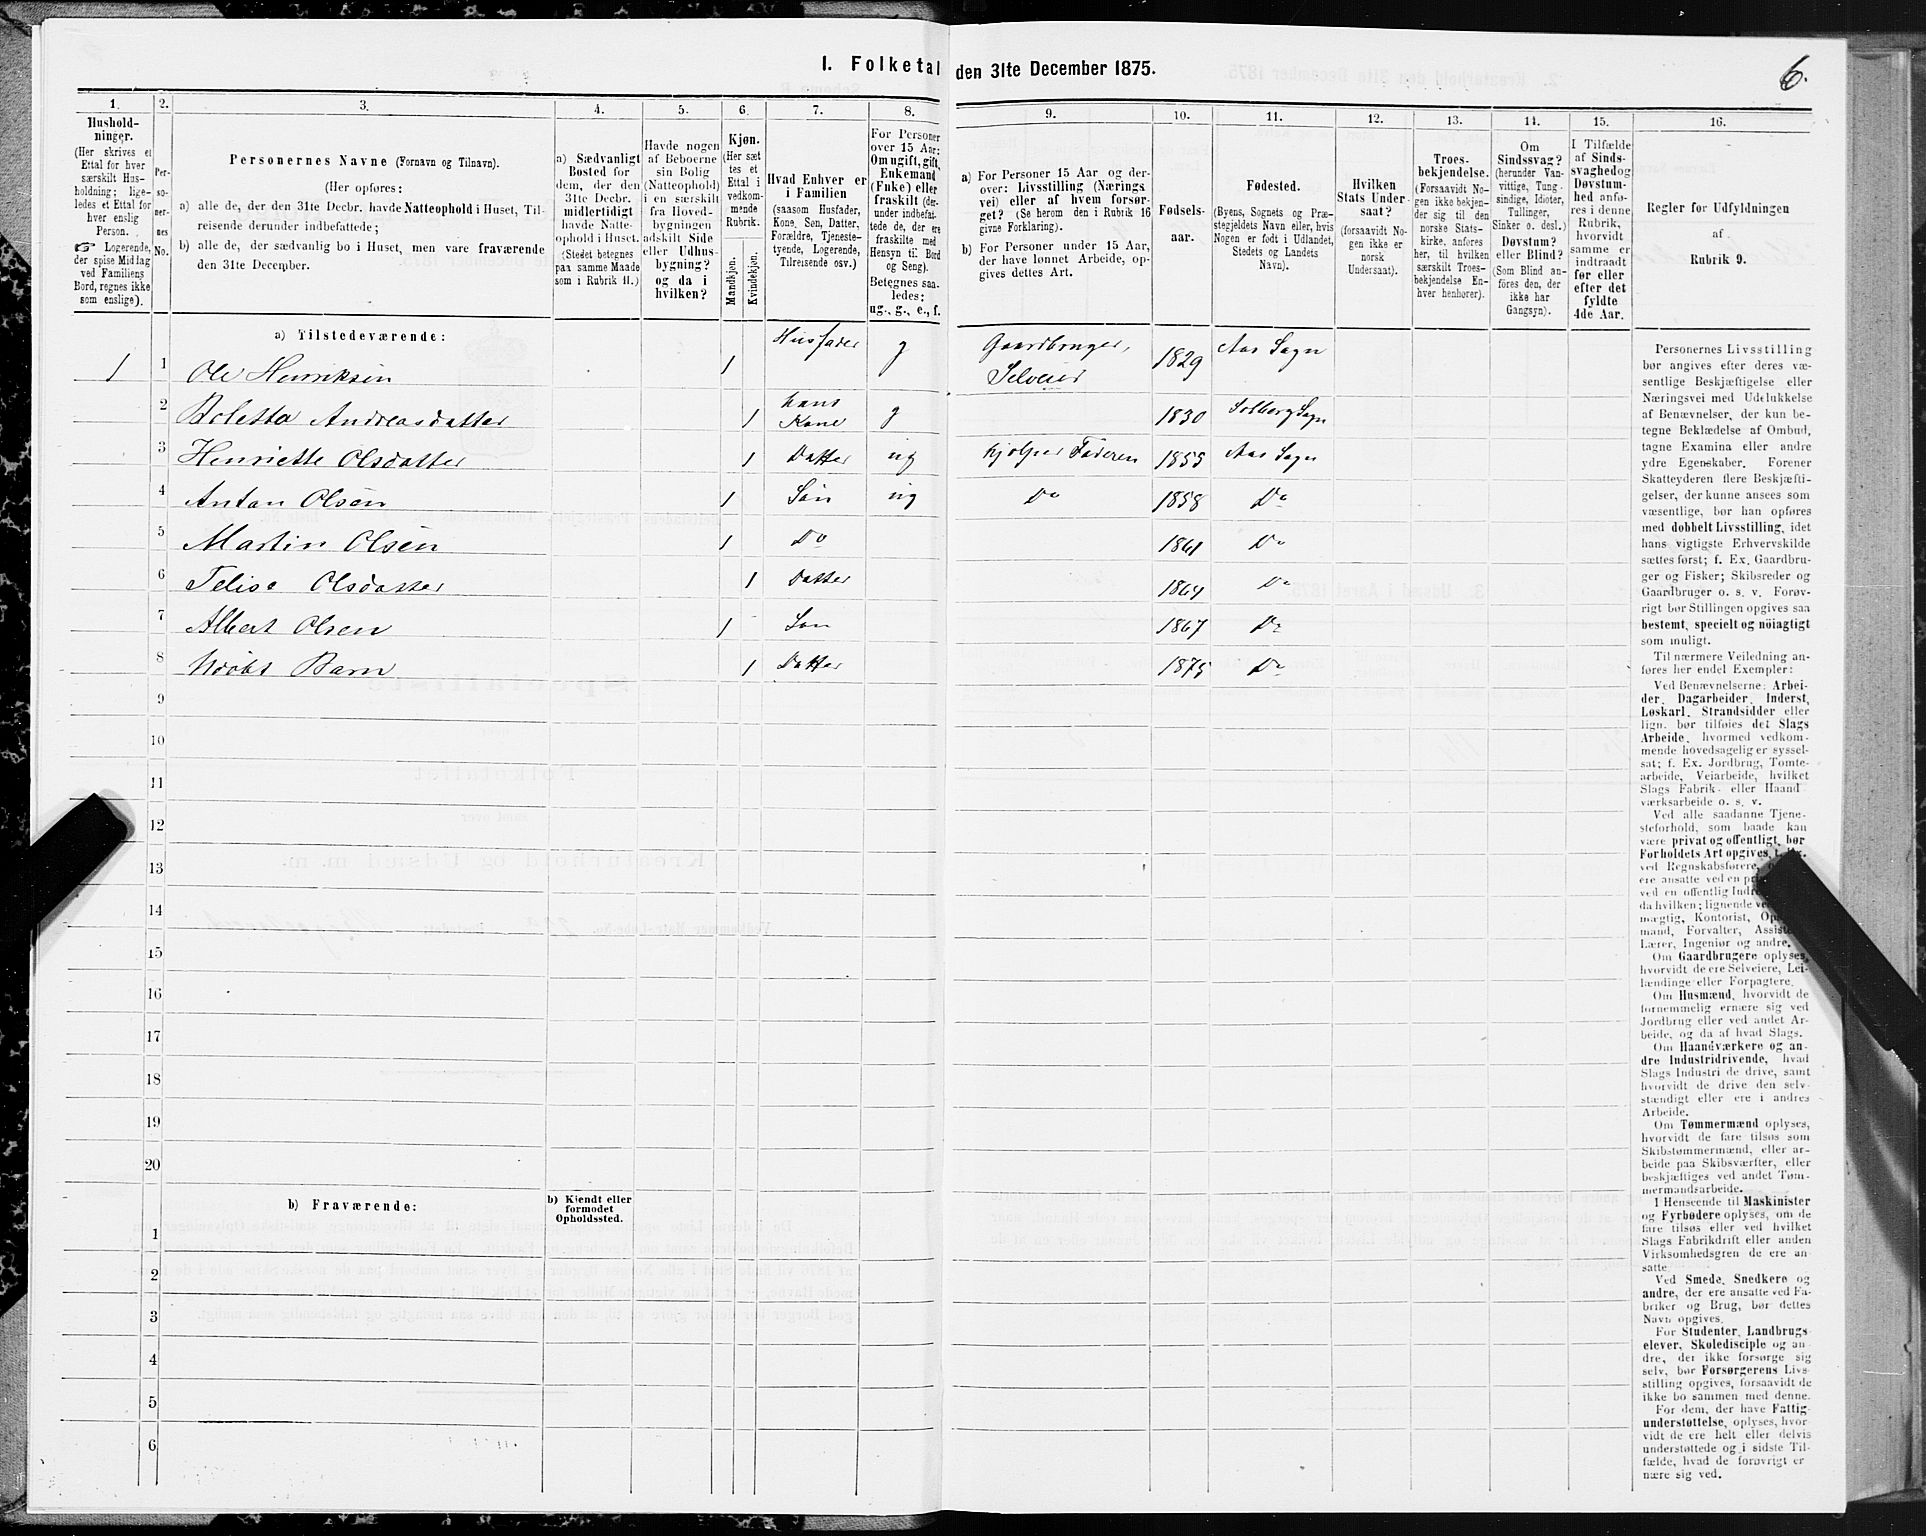 I. Folketal den 31te December 1875.
6.
1.
Hushold-
ninger.
(Her skrives et
Ettal for hver
særskilt Hus-
holdning; lige-
ledes et Ettal for
hver enslig
Person.
☞ Logerende,
der spise Middag
ved Familiens
Bord, regnes ikke
som enslige).
2.
Per-
so-
ner-
nes
No.
3.
Personernes Navne (Fornavn og Tilnavn).
(Her opføres:
a) alle de, der den 31te Decbr. havde Natteophold i Huset, Til-
reisende derunder indbefattede;
b) alle de, der sædvanlig bo i Huset, men vare fraværende
den 31te December.
4.
a) Sædvanligt
Bosted for
dem, der den
31te Decbr.
midlertidigt
havde Natte-
ophold i Huset.
(Stedet betegnes
paa samme Maade
som i Rubrik 11.)
5.
Havde nogen
af Beboerne
sin Bolig
(Natteophold)
i en særskilt
fra Hoved-
bygningen
adskilt Side
eller Udhus-
bygning?
og da i
hvilken?
6.
Kjøn.
(Her sæt
tes et
Ettal i
vedkom-
mende
Rubrik.
Mandkjøn.
Kvindekjøn.
7.
Hvad Enhver er
i Familien
(saasom Husfader,
Kone, Søn, Datter,
Forældre, Tjeneste-
tyende, Logerende,
Tilreisende osv.)
8.
For Personer
over 15 Aar:
Om ugift, gift,
Enkemand
(Enke) eller
fraskilt (der-
under indbefat-
tede de, der ere
fraskilte med
Hensyn til Bord
og Seng).
Betegnes saa-
ledes:
ug., g., e., f.
9.
a) For Personer 15 Aar og der-
over: Livsstilling (Nærings
vei) eller af hvem forsør-
get? (Se herom den i Rubrik 16
givne Forklaring).
b) For Personer under 15 Aar,
der have lønnet Arbeide, op-
gives dettes Art.
10.
Fødsels-
aar.
11.
Fødested.
(Byens, Sognets og Præ-
stegjeldets Navn eller, hvis
Nogen er født i Udlandet,
Stedets og Landets
Navn).
12.
Hvilken
Stats Under-
saat?
(forsaavidt No-
gen ikke er
norsk
Undersaat).
13.
Troes-
bekjendelse.
(Forsaavidt No-
gen ikke bekjen-
der sig til den
norske Stats-
kirke, anføres
her, til hvilken
særskilt Troes-
bekjendelse En-
hver henhører).
14.
Om
Sindssvag?
(herunder Van-
vittige, Tung-
sindige, Idioter,
Tullinger,
Sinker o. desl.)
Døvstum?
eller Blind?
(Som Blind an-
føres den, der
ikke har
Gangsyn).
15.
I Tilfælde
af Sinds-
svaghed og
Døvstum-
hed anfø-
res i denne
Rubrik,
hvorvidt
samme er
indtraadt
før eller
efter det
fyldte
4de Aar.
16.
Regler før Udfyldningen
af
Rubrik 9.
a) Tilstedeværende:
1 1 Ole Henriksen 1 Husfader g Gaardbruger, Selveier 1829 Aas Sogn
2 Boletta Andreasdatter 1 hans Kone g 1830 Solberg Sogn
3 Henriette Olsdatter 1 Datter ug hjelper Faderen 1855 Aas Sogn
4 Antan Olsen 1 Søn ug Do 1858 Do
5 Martin Olsen 1 Do 1861 Do
6 Telise Olsdatter 1 Datter 1864 Do
7 Albert Olsen 1 Søn 1867 Do
8 Udøbt Barn 1 Datter 1875 Do
9
10
11
12
13
14
15
16
17
18
19
20
b) Fraværende:
b) Kjendt eller
formodet
Opholdssted.
1
2
3
4
5
6
Personernes Livsstilling
bør angives efter deres væ-
sentlige Beskjæftigelse eller
Næringsvei med Udelukkelse
af Benævnelser, der kun be-
tegne Beklædelse af Ombud,
tagne Examina eller andre
ydre Egenskaber. Forener
Skatteyderen flere Beskjæfti-
gelser, der kunne ansees som
væsentlige, bør han opføres
med dobbelt Livsstilling, idet
hans vigtigste Erhvervskilde
sættes først; f. Ex. Gaardbru-
ger og Fisker; Skibsreder og
Gaardbruger o. s. v. Forøv-
rigt bør Stillingen opgives saa
bestemt, specielt og nöiagtigt
som muligt.
Til nærmere Veiledning an-
føres her endel Exempler:
Ved Benævnelserne: Arbei-
der, Dagarbeider, Inderst,
Løskarl, Strandsidder eller
lign. bør tilføies det Slags
Arbeide, hvormed vedkom-
mende hovedsagelig er syssel-
sat; f. Ex. Jordbrug, Tomte-
arbeide, Veiarbeide, hvilket
Slags Fabrik- eller Haand
værksarbeide o. s. v.
Ved alle saadanne Tjene-
steforhold, som baade kan
være privat og offentligt, bør
Forholdets Art opgives,
ved Regnskabsførere,
ere ansatte ved en
ved en offentlig
da hvilken; lignende
mægtig, Kontorist,
mand, Forvalter,
Lærer, Ingeniør og andre.
Om Gaardbrugere oplyses,
hvorvidt de ere Selveiere, Lei-
lændinge eller Forpagtere.
Om Husmænd, hvorvidt de
fornemmelig ernære sig ved
Jordbrug eller ved andet Ar-
beide, og da af hvad Slags.
Om Haandværkere og an-
dre Industridrivende, hvad
Slags Industri de drive, samt
hvorvidt de drive den selv-
stændigt eller ere i andres
Arbeide.
Om Tømmermænd oplyses,
hvorvidt de fare tilsøs som
Skibstømmermænd, eller ar-
beide paa Skibsværfter, eller
beskjæftiges ved andet Tøm-
mermandsarbeide.
I Henseende til Maskinister
og Fyrbødere oplyses, om de
fare tilsøs eller ved hvilket
Slags Fabrikdrift eller anden
Virksomhedsgren de ere an-
satte.
Ved Smede, Snedkere og
andre, der ere ansatte ved Fa-
briker og Brug, bør dettes
Navn opgives.
For Studenter, Landbrugs-
elever, Skoledisciple og an-
dre, der ikke forsørge sig
selv, bør Forsørgerens Livs-
stilling opgives, forsaavidt de
ikke bo sammen med denne.
For dem, der have Fattig-
understøttelse, oplyses, hvor-
vidt de ere helt eller delvis
understøttede og i sidste Til-
fælde, hvad de forøvrigt er
nære sig ved.